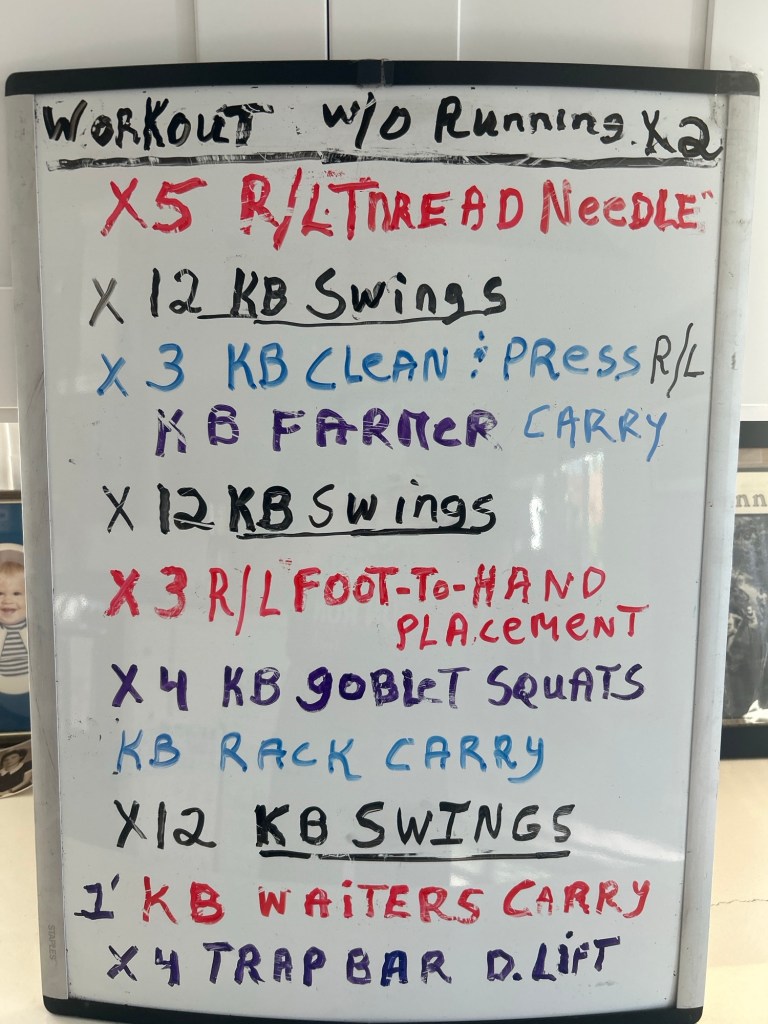 Workout w/o Running. X2
X5 R/L THREAD NeeDLE"
X 12 KB Swings
X 3 KB CLeAN & PRESS R/L
KB FARMeR CARRY
X 12 KB Swings
X 3 R/L FOOT-To-HAND
PLACeMENT
X 4 KB goBLeT SQUATS
KB RACK CARRY
X12 KB SWINGS
1' KB WAiTERS CARRY
X 4 TRAP BAR D. LiFT
STAPLES
nn